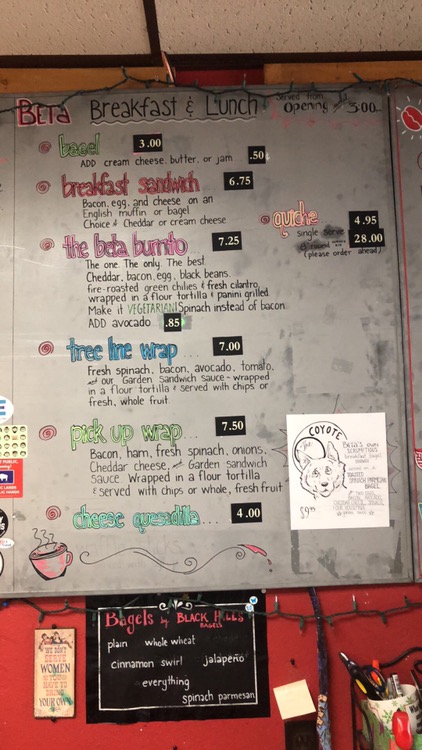 BETA Breakfast & Lunch
Served from
opening 'til 3:00
bagel 3.00
ADD cream cheese, butter, or jam .50
breakfast sandwich 6.75
Bacon, egg, and cheese on an
English muffin or bagel
Choice of Cheddar or cream cheese
quiche
Single Serve 4.95
28.00
(please order ahead)
the beta burrito 7.25
The one. The only. The best.
Cheddar, bacon, egg, black beans,
fire-roasted green chilies & fresh cilantro
wrapped in a flour tortilla & panini grilled
Make it VEGETARIAN! Spinach instead of bacon
ADD avocado .85
tree line wrap... 7.00
Fresh spinach, bacon, avocado, tomato,
and our Garden Sandwich sauce - wrapped
in a flour tortilla & served with chips or
fresh, whole fruit
pick up wrap... 7.50
Bacon, ham, fresh spinach, onions,
Cheddar cheese, and Garden Sandwich
Sauce. Wrapped in a flour tortilla
& served with chips or whole, fresh fruit
cheese quesadilla... 4.00
the COYOTE
BETA's own
SCRUMPTIOUS
breakfast bagel
SPINACH PARMESAN
BAGEL
$9.95
Bagels by BLACK HILLS
BAGELS
plain whole wheat
cinnamon swirl jalapeño
everything
spinach parmesan
WE DON'T
SERVE
WOMEN
HERE
YOU HAVE TO
BRING
YOUR OWN